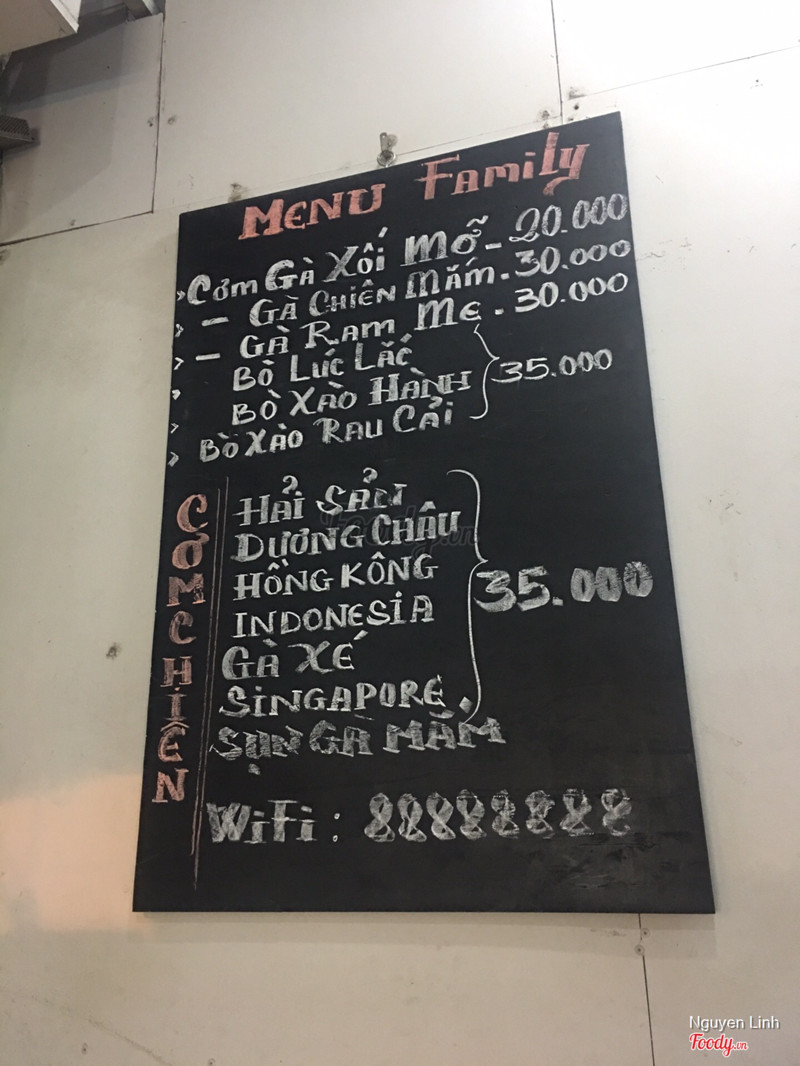 MENU Family
> Cơm Gà Xối Mỡ - 20.000
> - Gà Chiên Mắm - 30.000
> - Gà Ram Me - 30.000
> Bò Lúc Lắc
> Bò Xào Hành 35.000
> Bò Xào Rau Cải
CƠM CHIÊN
HẢI SẢN
DƯƠNG CHÂU
HỒNG KÔNG
INDONESIA 35.000
GÀ XÉ
SINGAPORE
SỤN GÀ MẮM
WiFi : 88888888
Foody.vn
Nguyen Linh
Foody.vn